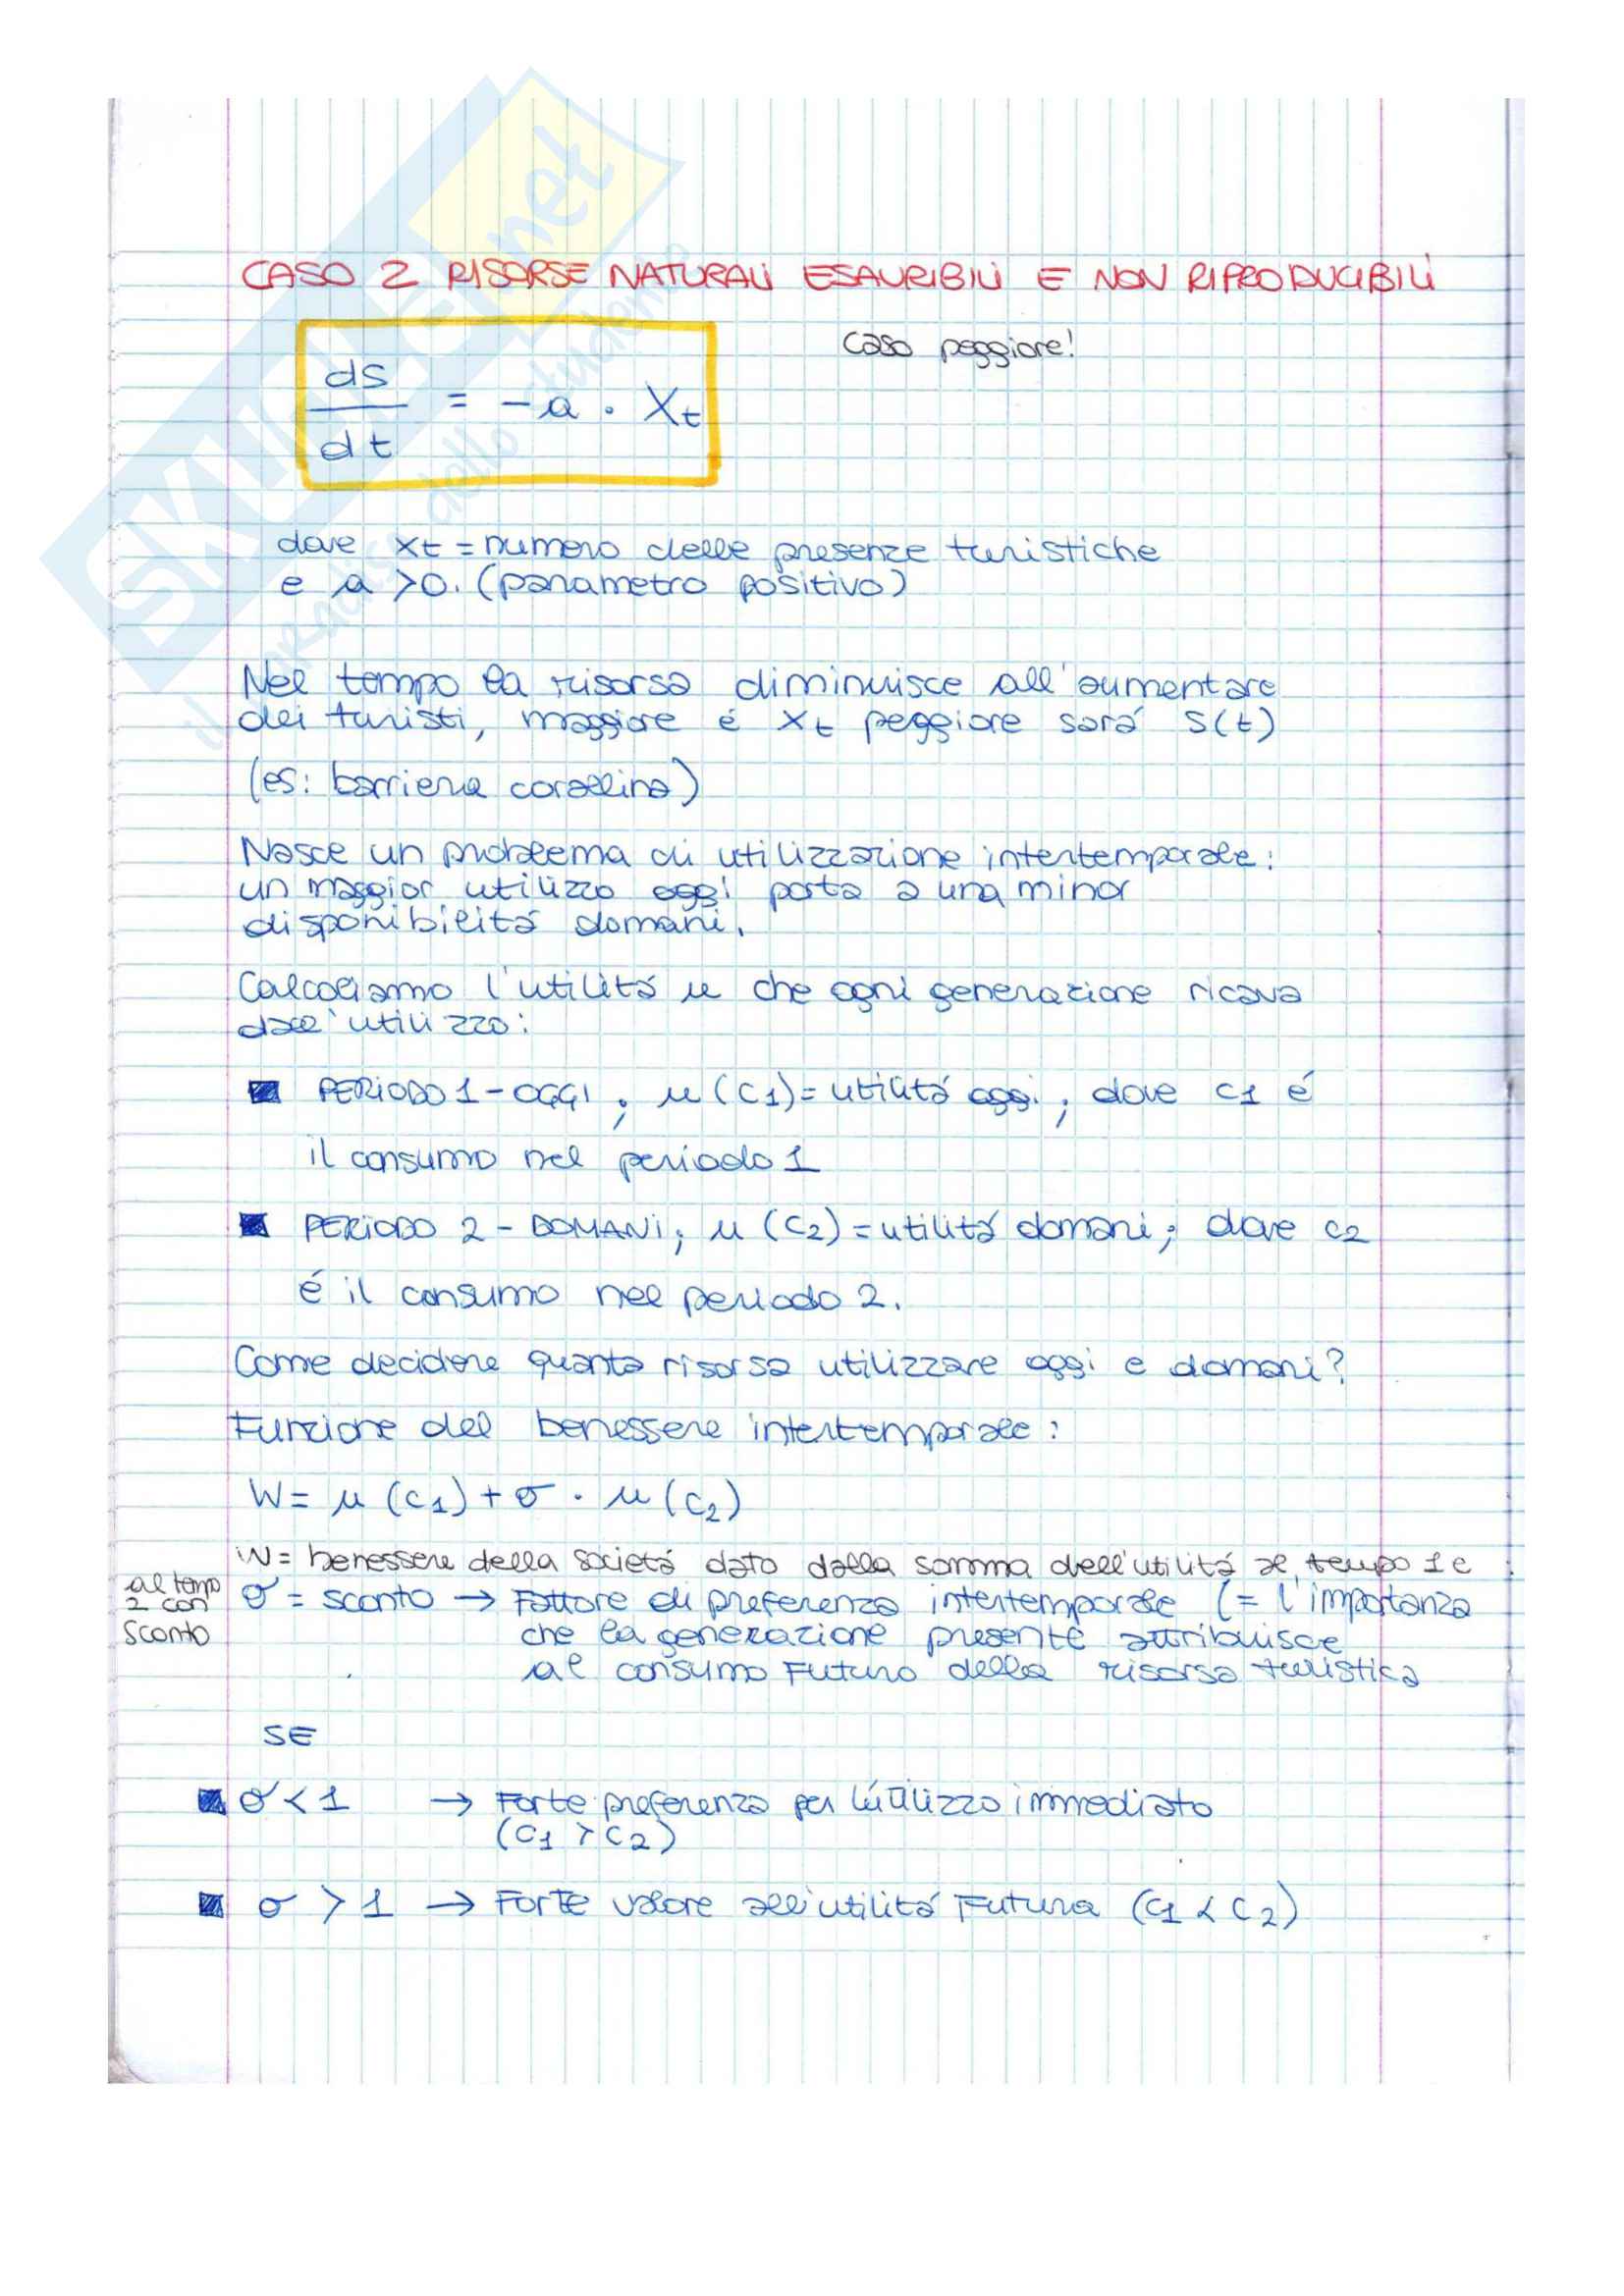 SKUOLA.net
il paradiso dello studente
CASO 2 RISORSE NATURALI ESAURIBILI E NON RIPRODUCIBILI
caso peggiore!
ds/dt = -a · Xt
dove xt = numero delle presenze turistiche
e a >0. (parametro positivo)
Nel tempo la risorsa diminuisce all'aumentare
dei turisti, maggiore é xt peggiore sará S(t)
(es: barriera corallina)
Nasce un problema di utilizzazione intertemporale:
un maggior utilizzo oggi porta a una minor
disponibilitá domani.
Calcoliamo l'utilitá u che ogni generazione ricava
dall'utilizzo:
■ PERIODO 1 - OGGI ; u (C1) = utilitá oggi ; dove c1 é
il consumo nel periodo 1
■ PERIODO 2 - DOMANI ; u (C2) = utilitá domani ; dove c2
é il consumo nel periodo 2.
Come decidere quanta risorsa utilizzare oggi e domani?
Funzione del benessere intertemporale:
W = u (c1) + σ · u (c2)
W = benessere della societá dato dalla somma dell'utilitá al tempo 1 e
al temp
2 con
sconto
σ = sconto → Fattore di preferenza intertemporale (= l'importanza
che la generazione presente attribuisce
al consumo futuro della risorsa turistica
SE
■ σ < 1 → Forte preferenza per l'utilizzo immediato
(C1 > C2)
■ σ > 1 → Forte valore all'utilitá Futura (C1 < C2)